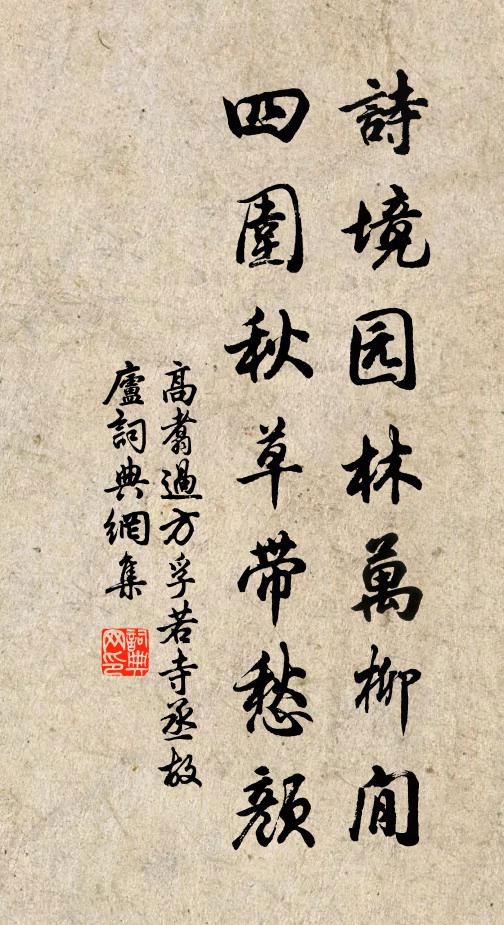 詩境园林萬柳间
四圍秋草带愁顔
高翥過方孚若寺丞故
廬詞典網集
詞典网印